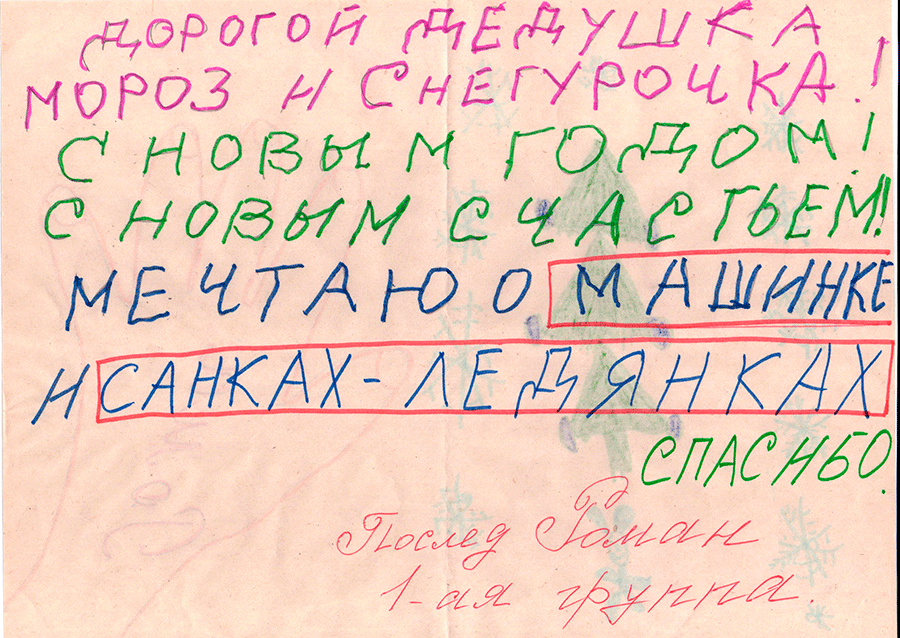 ДОРОГОЙ ДЕДУШКА
МОРОЗ И СНЕГУРОЧКА!
С НОВЫМ ГОДОМ!
С НОВЫМ СЧАСТЬЕМ!
МЕЧТАЮ О МАШИНКЕ
И САНКАХ-ЛЕДЯНКАХ
СПАСИБО.
Послед Роман
1-ая группа.